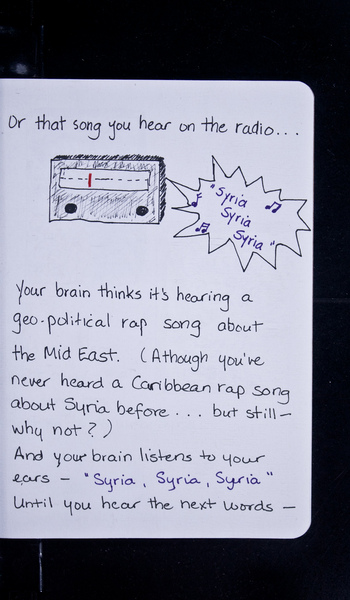 Or that song you hear on the radio...
"Syria
Syria
Syria"
Your brain thinks it's hearing a
geo-political rap song about
the Mid East. (Athough you've
never heard a Caribbean rap song
about Syria before... but still—
why not?)
And your brain listens to your
ears – "Syria, Syria, Syria"
Until you hear the next words –